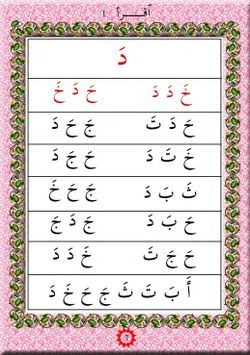 أقرأ ١
دَ
خَ دَ دَ حَ دَ خَ
حَ دَ تَ جَ حَ دَ
خَ تَ دَ حَ جَ دَ
ثَ بَ دَ جَ حَ خَ
حَ بَ دَ جَ دَ جَ
حَ جَ تَ خَ دَ دَ
أَ بَ تَ ثَ جَ حَ خَ دَ